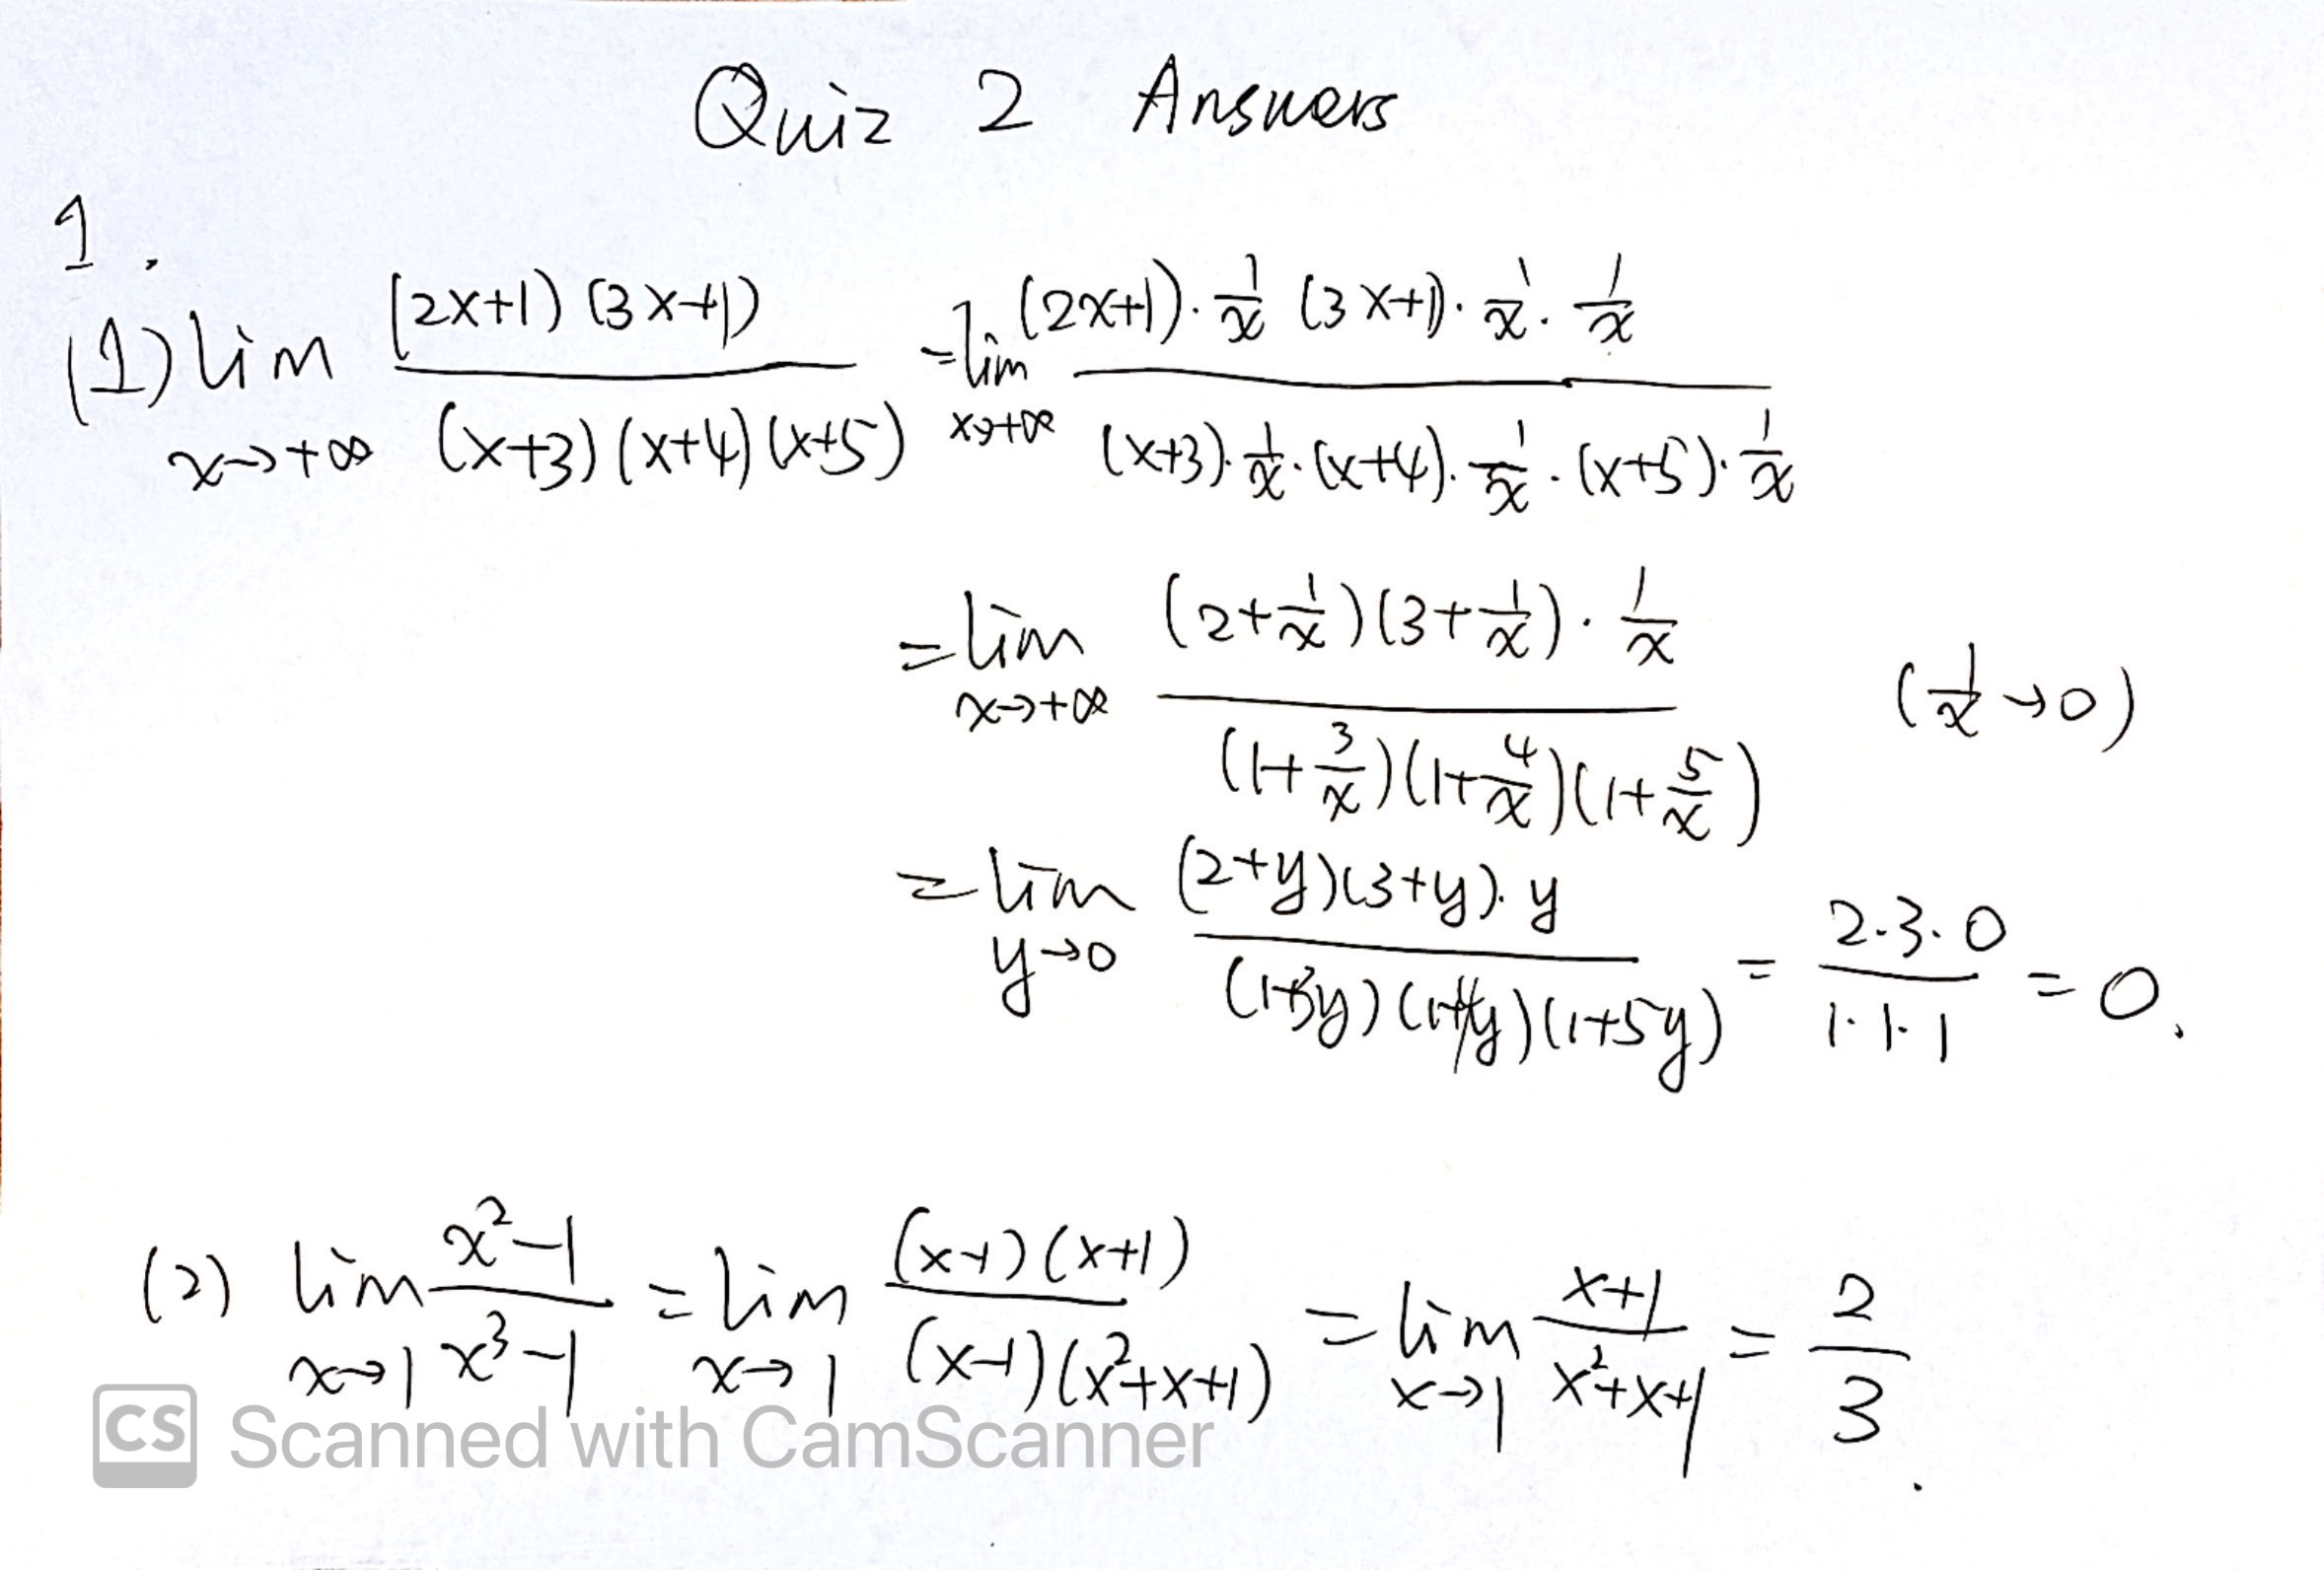 Quiz 2 Answers
1.
(1) lim_{x→+∞} \frac{(2x+1)(3x+1)}{(x+3)(x+4)(x+5)} = lim_{x→+∞} \frac{(2x+1)·\frac{1}{x}(3x+1)·\frac{1}{x}·\frac{1}{x}}{(x+3)·\frac{1}{x}·(x+4)·\frac{1}{x}·(x+5)·\frac{1}{x}}
= lim_{x→+∞} \frac{(2+\frac{1}{x})(3+\frac{1}{x})·\frac{1}{x}}{(1+\frac{3}{x})(1+\frac{4}{x})(1+\frac{5}{x})} (\frac{1}{x}→0)
= lim_{y→0} \frac{(2+y)(3+y)·y}{(1+3y)(1+4y)(1+5y)} = \frac{2·3·0}{1·1·1} = 0.
(2) lim_{x→1} \frac{x^2-1}{x^3-1} = lim_{x→1} \frac{(x-1)(x+1)}{(x-1)(x^2+x+1)} = lim_{x→1} \frac{x+1}{x^2+x+1} = \frac{2}{3}.
CS Scanned with CamScanner